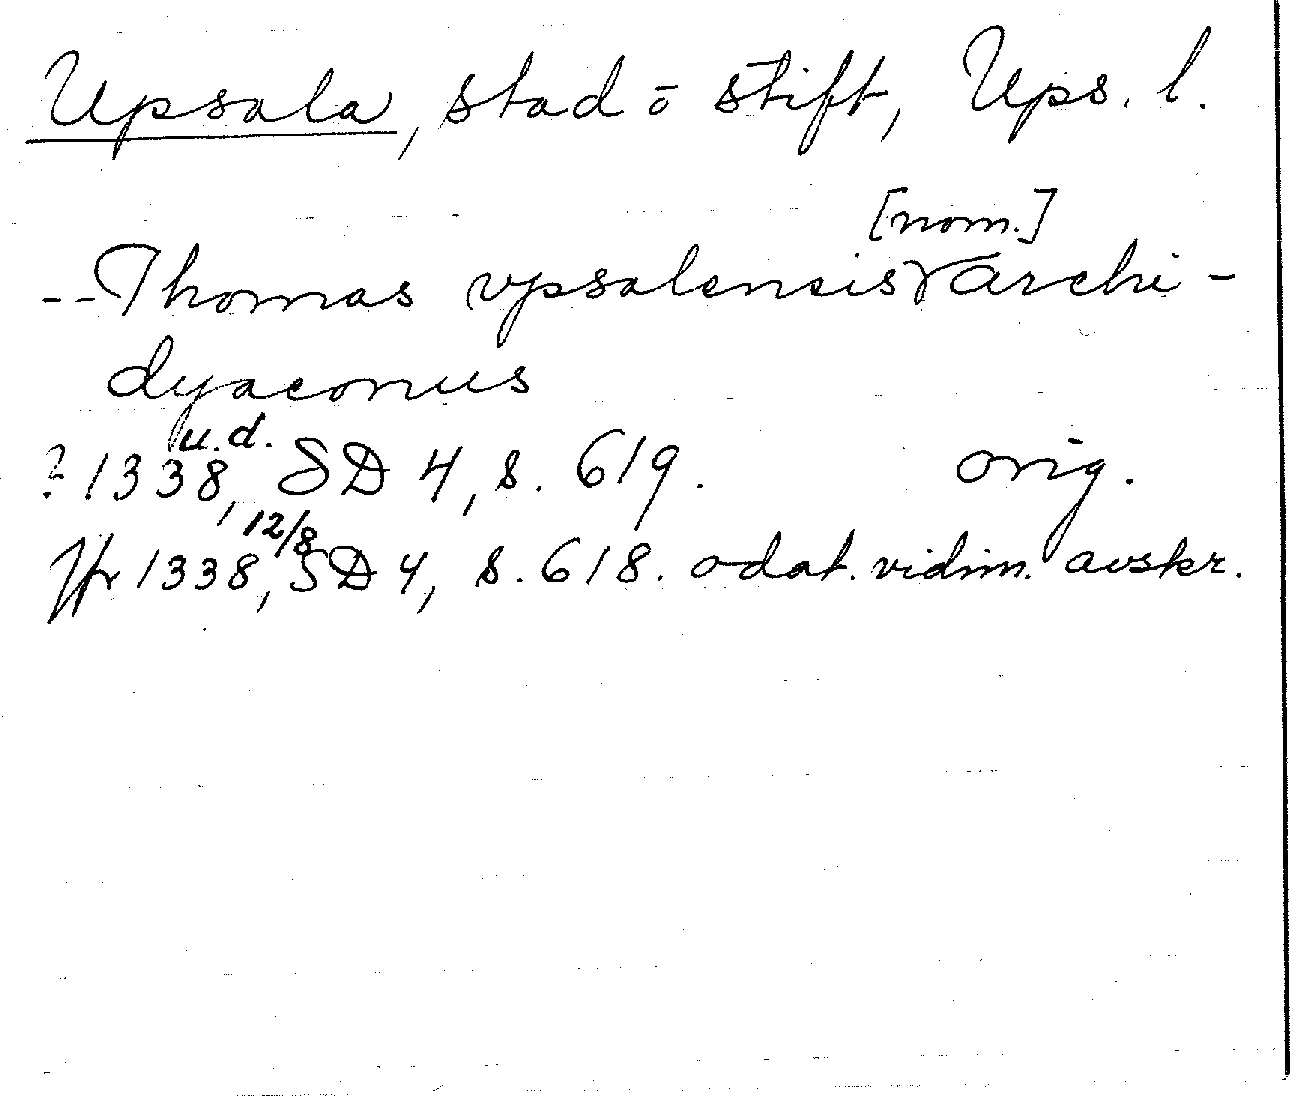 Upsala, stad o stift, Ups. l.
[nom.]
-- Thomas vpsalensis archi-
dyaconus
u.d.
? 1338, SD 4, s. 619. orig.
12/8
Jfr 1338, SD 4, s. 618. odat. vidim. avskr.